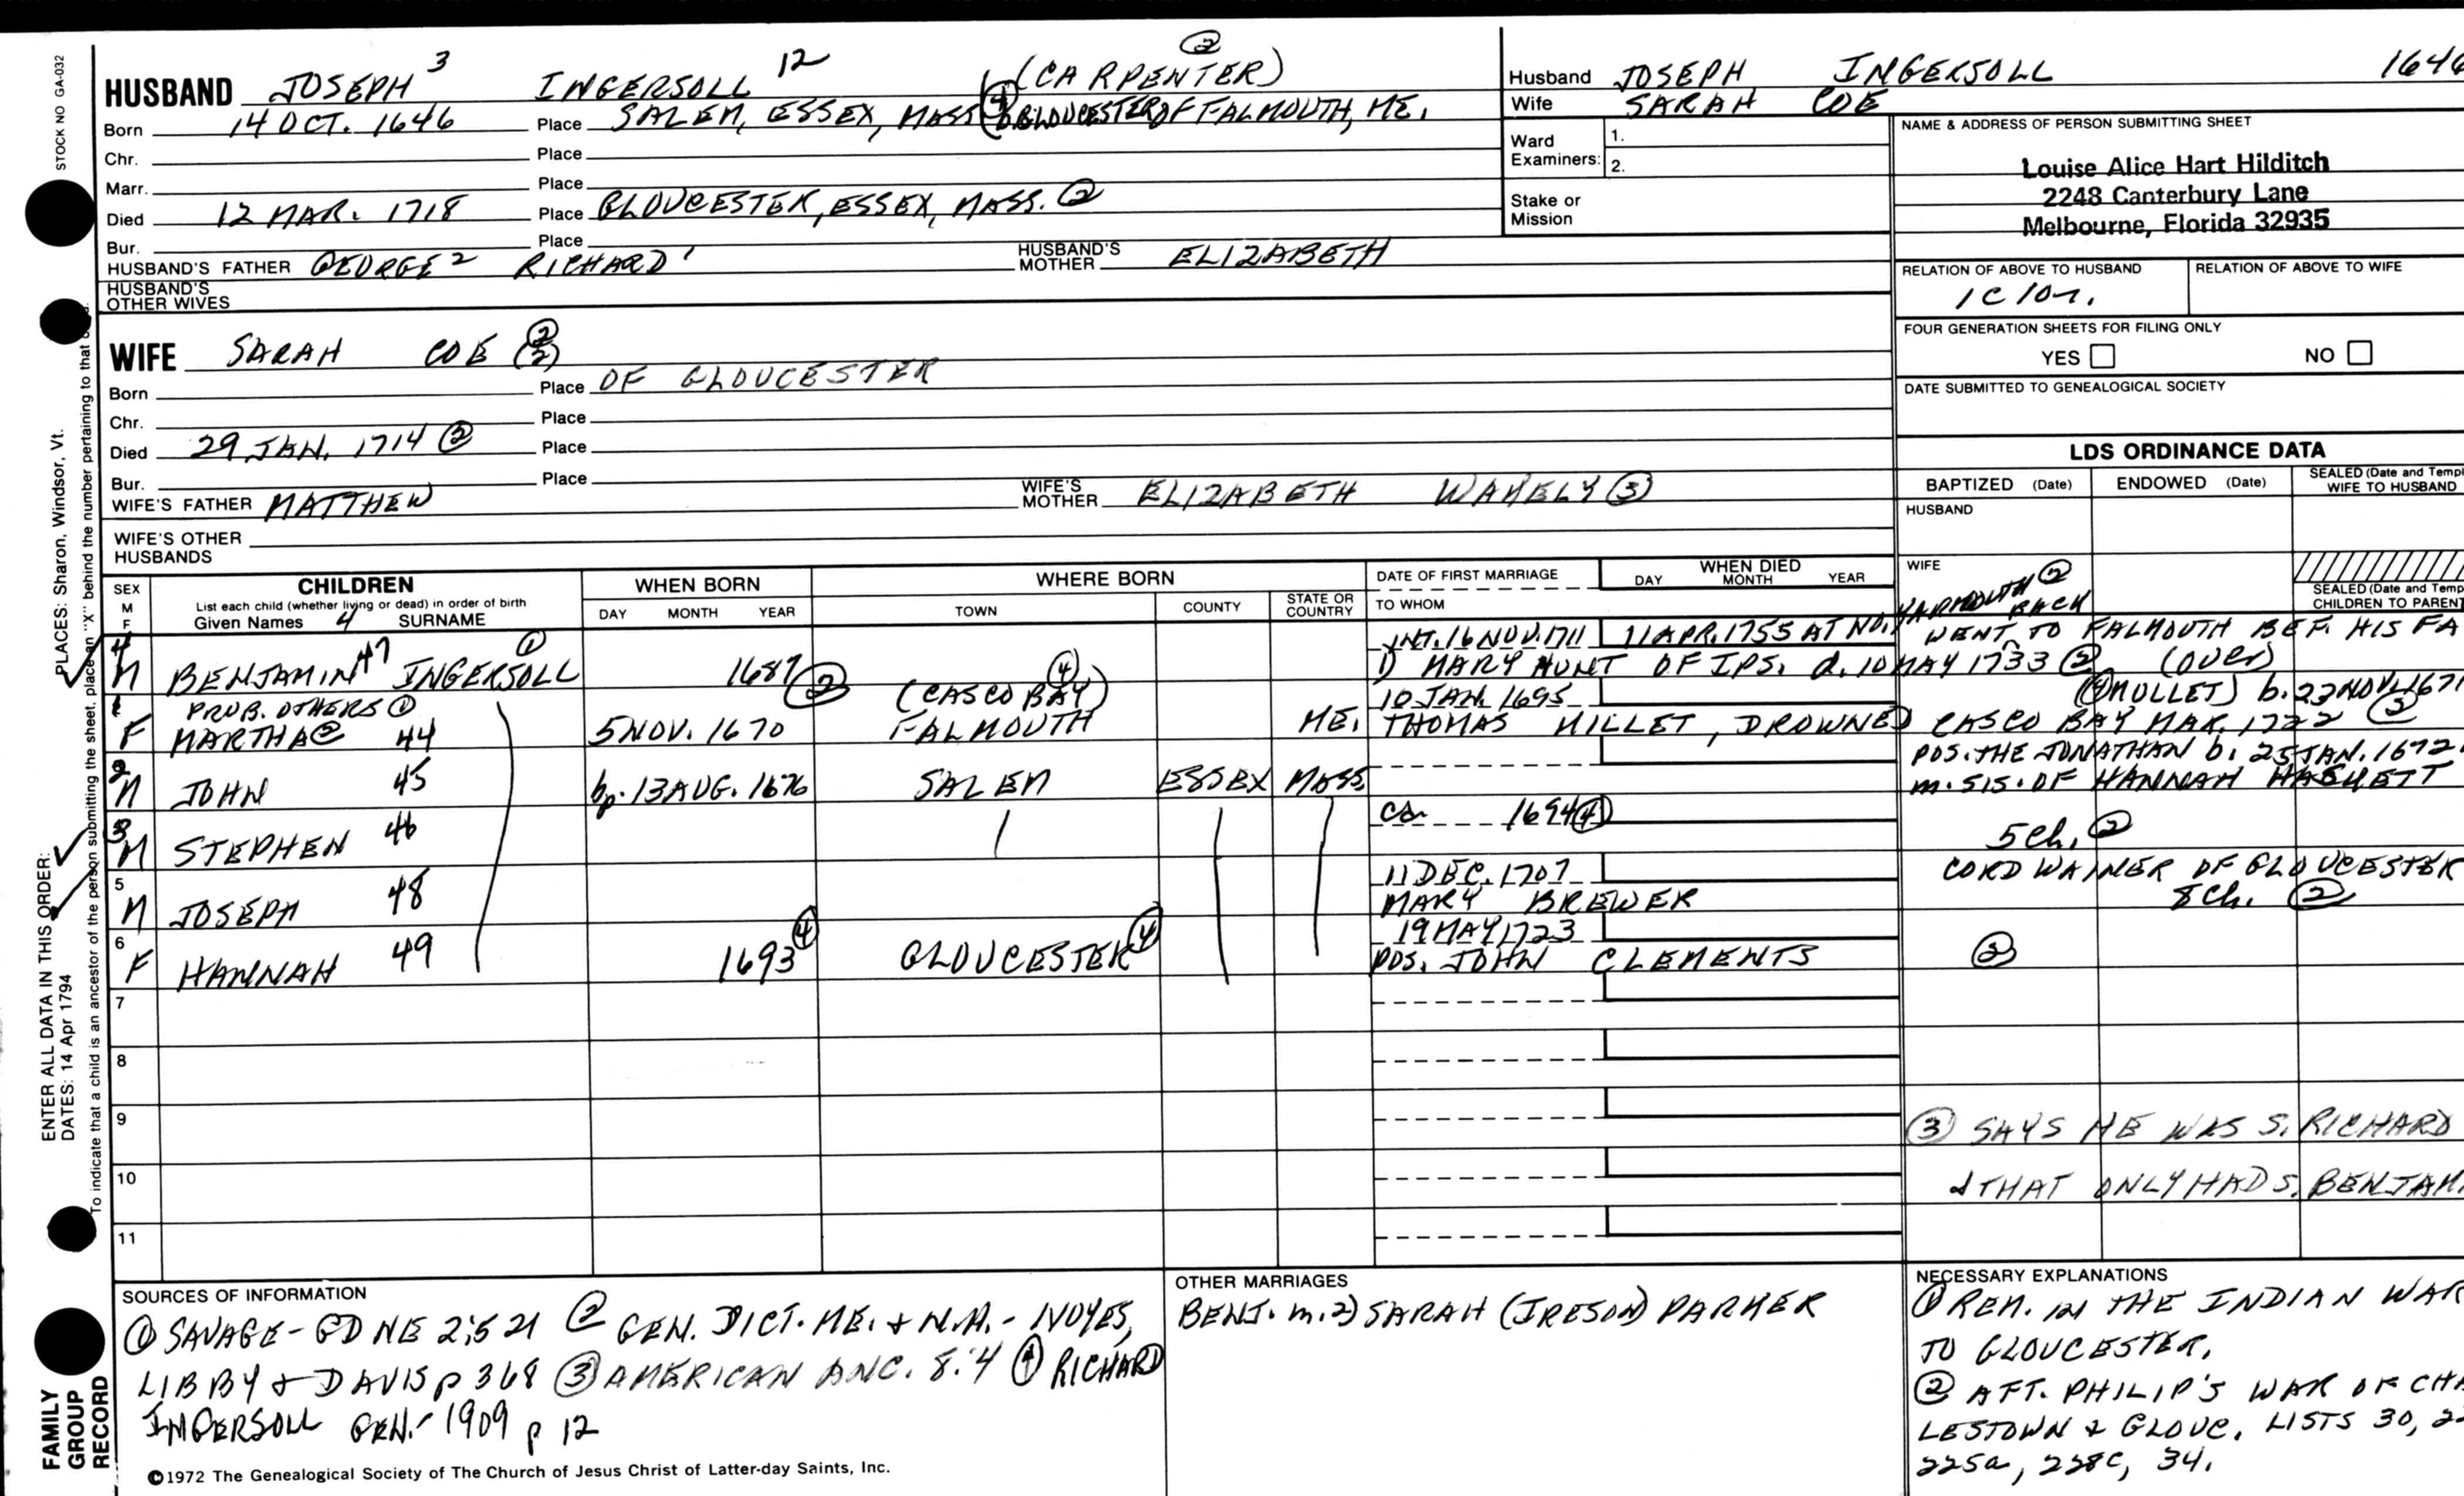 STOCK NO GA-032
HUSBAND JOSEPH 3 INGERSOLL 12 (CARPENTER) ②
Born 14 OCT. 1646 Place SALEM, ESSEX, MASS ④ GLOUCESTER OF FALMOUTH, ME.
Chr. Place
Marr. Place
Died 12 MAR. 1718 Place GLOUCESTER, ESSEX, MASS. ②
Bur. Place
HUSBAND'S FATHER GEORGE 2 RICHARD 1 HUSBAND'S MOTHER ELIZABETH
HUSBAND'S OTHER WIVES
WIFE SARAH COE ② 2
Born Place OF GLOUCESTER
Chr. Place
Died 29 JAN. 1714 ② Place
Bur. Place
WIFE'S FATHER MATTHEW WIFE'S MOTHER ELIZABETH WAKELY ③
WIFE'S OTHER HUSBANDS
Husband JOSEPH INGERSOLL 1646
Wife SARAH COE
Ward Examiners: 1.
2.
Stake or Mission
NAME & ADDRESS OF PERSON SUBMITTING SHEET
Louise Alice Hart Hilditch
2248 Canterbury Lane
Melbourne, Florida 32935
RELATION OF ABOVE TO HUSBAND RELATION OF ABOVE TO WIFE
1C 10r.
FOUR GENERATION SHEETS FOR FILING ONLY
YES NO
DATE SUBMITTED TO GENEALOGICAL SOCIETY
LDS ORDINANCE DATA
BAPTIZED (Date) ENDOWED (Date) SEALED (Date and Templ
WIFE TO HUSBAND
HUSBAND
WIFE
SEALED (Date and Temp
CHILDREN TO PARENT
SEX M F CHILDREN WHEN BORN WHERE BORN DATE OF FIRST MARRIAGE WHEN DIED
List each child (whether living or dead) in order of birth
Given Names 4 SURNAME DAY MONTH YEAR TOWN COUNTY STATE OR COUNTRY TO WHOM DAY MONTH YEAR
INT. 16 NOV. 1711 11 APR. 1755 AT NO. YARMOUTH ② WENT BACK TO FALMOUTH BEF. HIS FA
4 M BENJAMIN 47 INGERSOLL ① 1687 ② 1) MARY HUNT OF IPS. d. 10 MAY 1733 ② (over)
PROB. OTHERS ① (CASCO BAY) ④ 10 JAN. 1695 (④ MULLET) b. 23 NOV. 1671
1 F MARTHA ② 44 5 NOV. 1670 FALMOUTH ME. THOMAS MILLET, DROWNED CASCO BAY MAR. 1722 ②
POS. THE JONATHAN b. 25 JAN. 1672
2 M JOHN 45 bp. 13 AUG. 1676 SALEM ESSEX MASS m. SIS. OF HANNAH
ca 1694 ④
3 M STEPHEN 46 5 Ch. ②
11 DEC. 1707 CORDWAINER OF GLOUCESTER
5 M JOSEPH 48 MARY BREWER 8 Ch. ②
19 MAY 1723
6 F HANNAH 49 1693 ④ GLOUCESTER ④ POS. JOHN CLEMENTS ②
7
8
9
③ SAYS HE WAS S. RICHARD
10
& THAT ONLY HAD S. BENJAM
11
SOURCES OF INFORMATION
① SAVAGE - GD NE 2:521 ② GEN. DICT. ME. & N.H. - NOYES,
LIBBY & DAVIS p 368 ③ AMERICAN ANC. 8:4 ④ RICHARD
INGERSOLL GEN. - 1909 p 12
OTHER MARRIAGES
BENJ. m. 2) SARAH (IRESON) PARKER
NECESSARY EXPLANATIONS
① REM. IN THE INDIAN WAR
TO GLOUCESTER.
② AFT. PHILIP'S WAR OF CHA
LESTOWN & GLOUC. LISTS 30, 22
225a, 228c, 34.
©1972 The Genealogical Society of The Church of Jesus Christ of Latter-day Saints, Inc.
FAMILY GROUP RECORD
ENTER ALL DATA IN THIS ORDER:
DATES: 14 Apr 1794
PLACES: Sharon, Windsor, Vt.
To indicate that a child is an ancestor of the person submitting the sheet, place an "X" behind the number pertaining to that